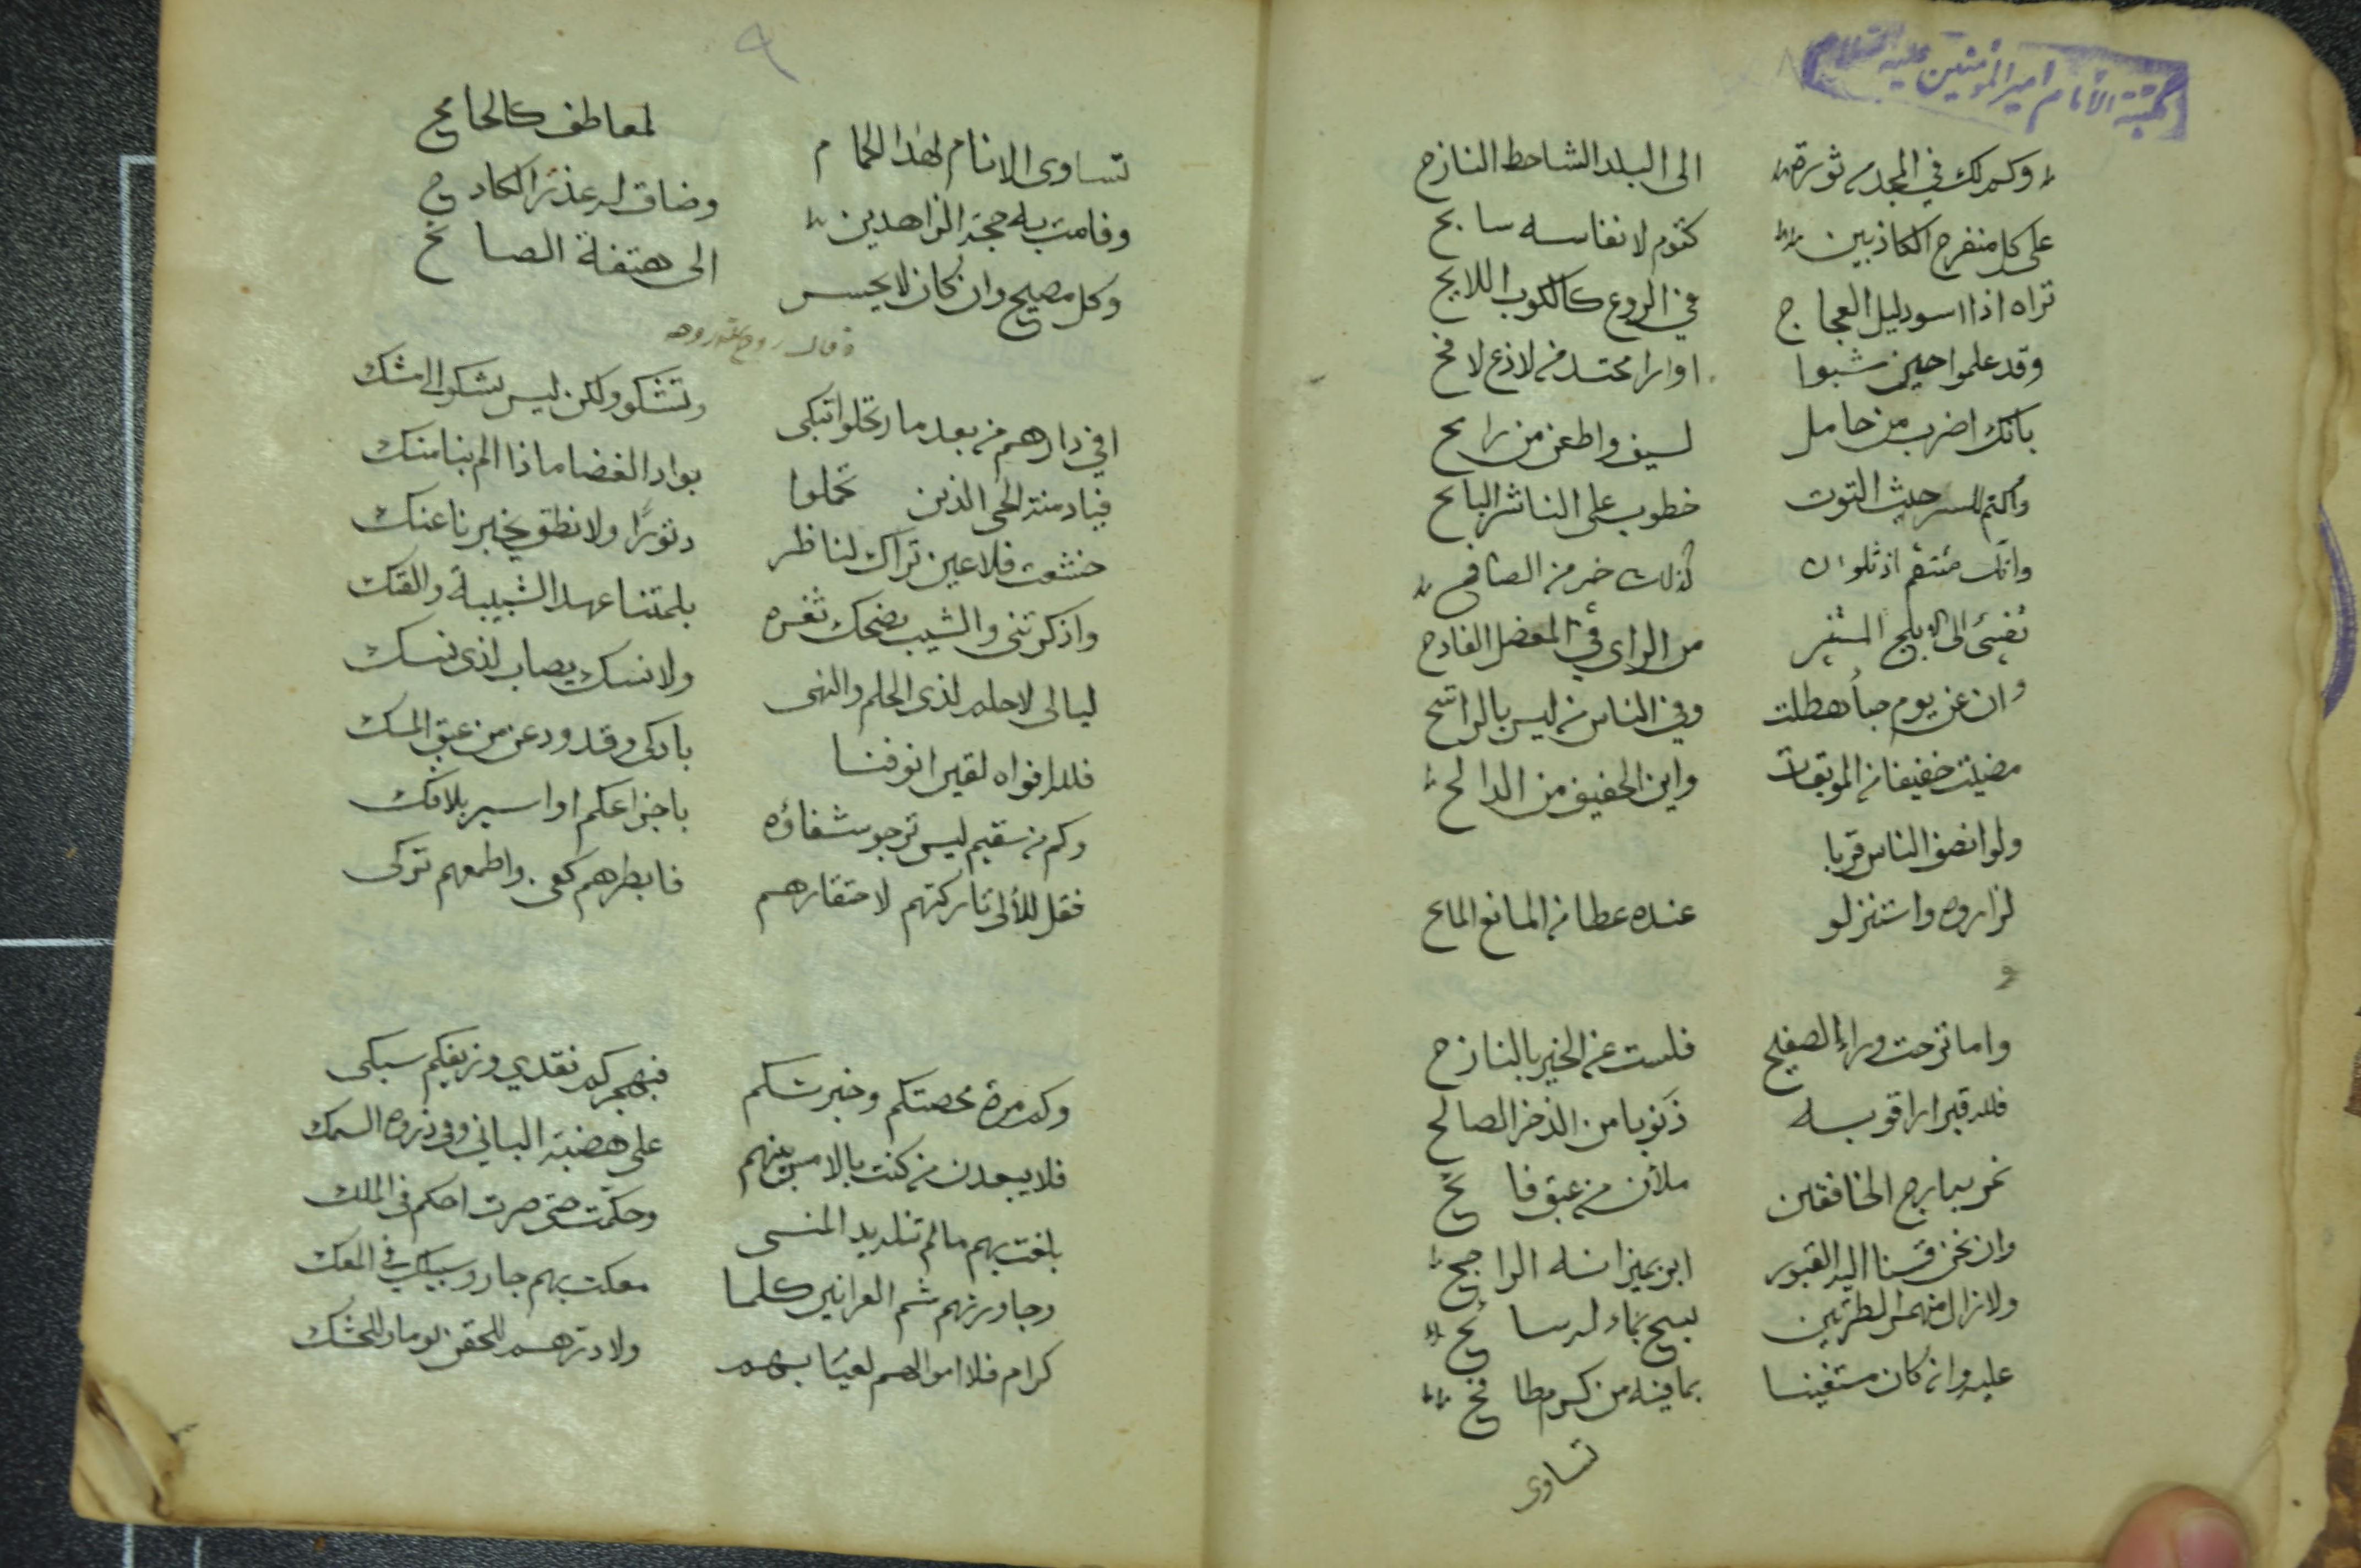 مكتبة الأمام امير المؤمنين عليه السلام
وكم لك في المجد من ثورة الى البلد الشاحط النازح
على كل منفرج الكاذبين كتوم لانفاسه سابح
تراه اذا اسود ليل العجاج في الروع كالكوكب اللايح
وقد علموا حين شبوا اوارا محتدم لاذع لافح
بانك اضرب من حامل لسيف واطعن من رامح
واكتم للسر حيث التوت خطوب على الناشر البايح
وانك منتقم اذ ثلوان كذلك خير من الصافح
تفيئ الى الابلج المستنير من الراي في المعضل الفادح
وان عن يوم حبا هطلت وفي الناس من ليس بالراشح
مضيت خفيفا من الموبقات واين الخفيف من الدالح
ولو انصف الناس قربا
لزاروه واستنزلو عنده عطا من المانع المايح
و
واما نزحت وراء الصفيح فلست عن الخير بالنازح
فلله قبرا راقوبه ذنوبا من الذخر الصالح
نمر به ارج الخافقين ملأن من عبق فايح
وان نحن قسنا اليه القبور ابر بميزانه الراجح
ولا زال منهمر الطرتين يسيح بماء له سايح
عليه وان كان مستغنيا بما فيه من كرم طافح
تساوى
٩
تساوى الانام لهذا الحمام لمعاطف كالجامح
وقامت به حجة الزاهدين وضاق له عذر الكادح
وكل مصيح وان كان لا يحس الى هتفة الصايح
وقال روح الله روحه
افي دارهم من بعد ما رتحلوا تبكى وتشكو ولكن ليس تشكو الى مشك
فيا دمنة الحي الذين تحملوا بواد الغضا ماذا الم بنا منك
خشعت فلا عين تراك لناظر دثورًا ولا نطق يخبرنا عنك
واذكرتني والشيب يضحك ثغره بلمتنا عهد الشبيبة والفتك
ليالى لا حلم لذى الحلم والنهى ولا نسك يصاب لذى نسك
فلله افواه لقين انوفنا باذكى وقد ودعن من عبق المسك
وكم من سقيم ليس نرجو شفاؤه باجزاعكم او اسير بلا فك
فقل للألى تاركتهم لاحتقارهم فابطرهم كفى واطمعهم تركى
وكم مرة محصتكم وخبرتكم فبهرجكم نقدي وزيفكم سبكى
فلا يبعدن من كنت بالامس بينهم على هضبة الباني وفي ذروه السمك
بلغت بهم ما لم تنله يد المنى وحكمت حتى صرت احكم في الملك
وجاورتهم شم العرانين كلما معكت بهم جار وسبك في المعك
كرام فلا اموالهم لعيابهم ولا درهم للحقن يوما وللحشك